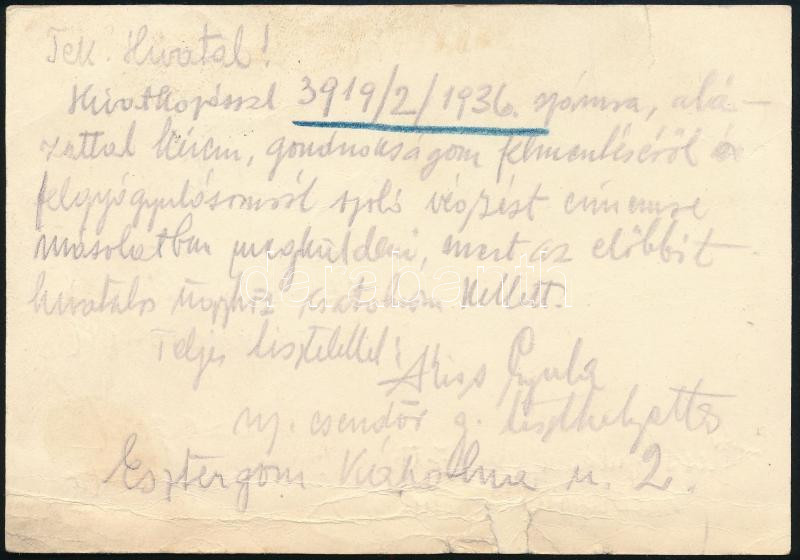 Tek. Hivatal!
Hivatkozással 3919/2/1936. számra, alá-
zattal kérem, gondnokságom felmentéséről és
felgyógyulásomról szoló végzést címemre
másolatban megküldeni, mert az előbbit
hivatalos ügyhöz csatolnom kellett.
Teljes tisztelettel:
Kiss Gyula
ny. csendőr g. tiszthelyettes
Esztergom Kiápolna u. 2.
darabanth